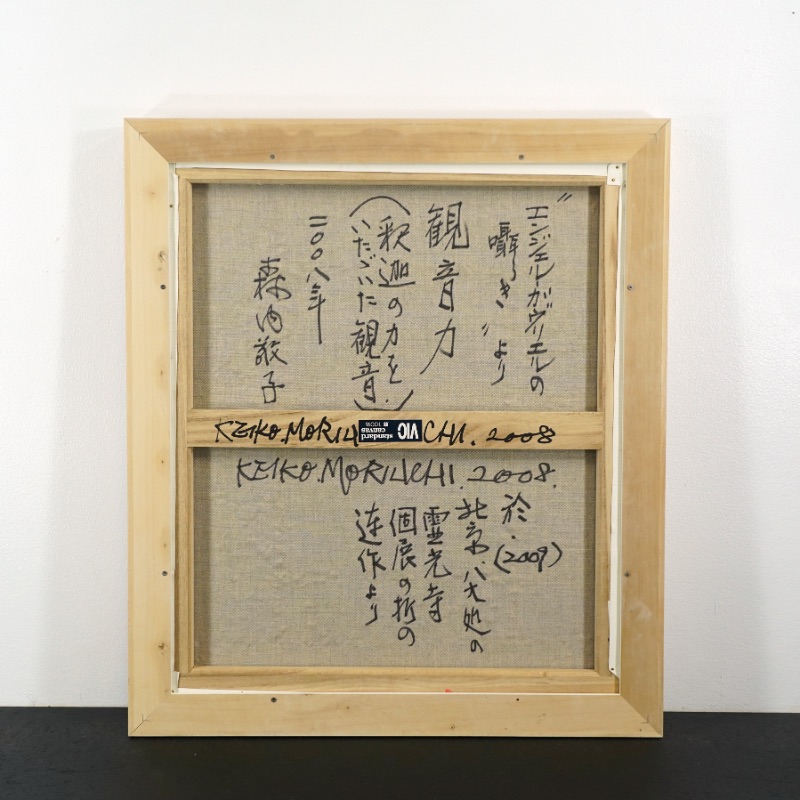 ”エンジェル・ガヴリエルの
囁き”より
観音力
(釈迦の力を
いただいた観音)
二〇〇八年
森内敬子
KEIKO.MORIUCHI.2008
VIC
standard
canvas
KEIKO.MORIUCHI.2008.
於.(2009)
北京、八大処の
霊光寺
個展の折の
連作より